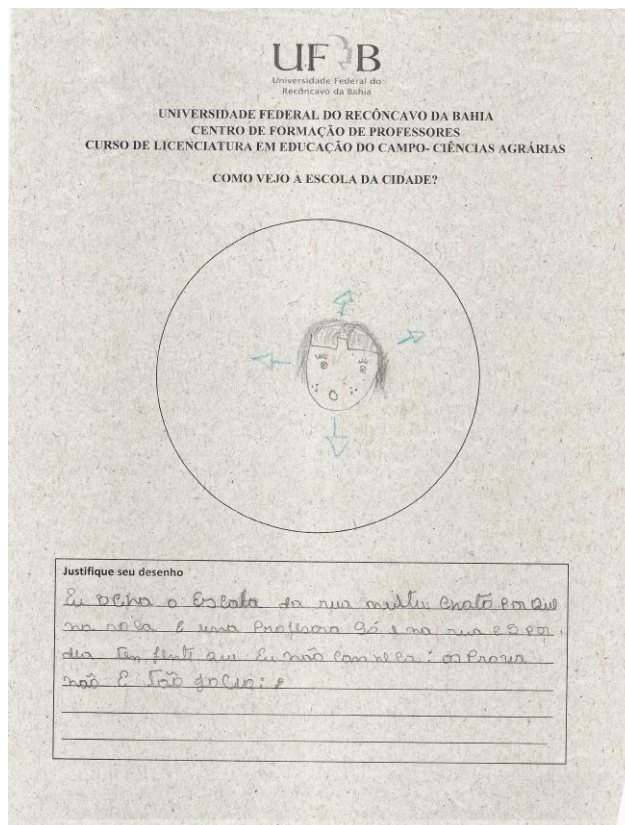 UFRB
Universidade Federal do
Recôncavo da Bahia
UNIVERSIDADE FEDERAL DO RECÔNCAVO DA BAHIA
CENTRO DE FORMAÇÃO DE PROFESSORES
CURSO DE LICENCIATURA EM EDUCAÇÃO DO CAMPO- CIÊNCIAS AGRÁRIAS
COMO VEJO A ESCOLA DA CIDADE?
Justifique seu desenho
Eu acho a Escola da rua muito chato Por que
na roça é uma Professora só e na rua é 5 Por
dia tem gente que Eu não conheço: as Prova
não é tão